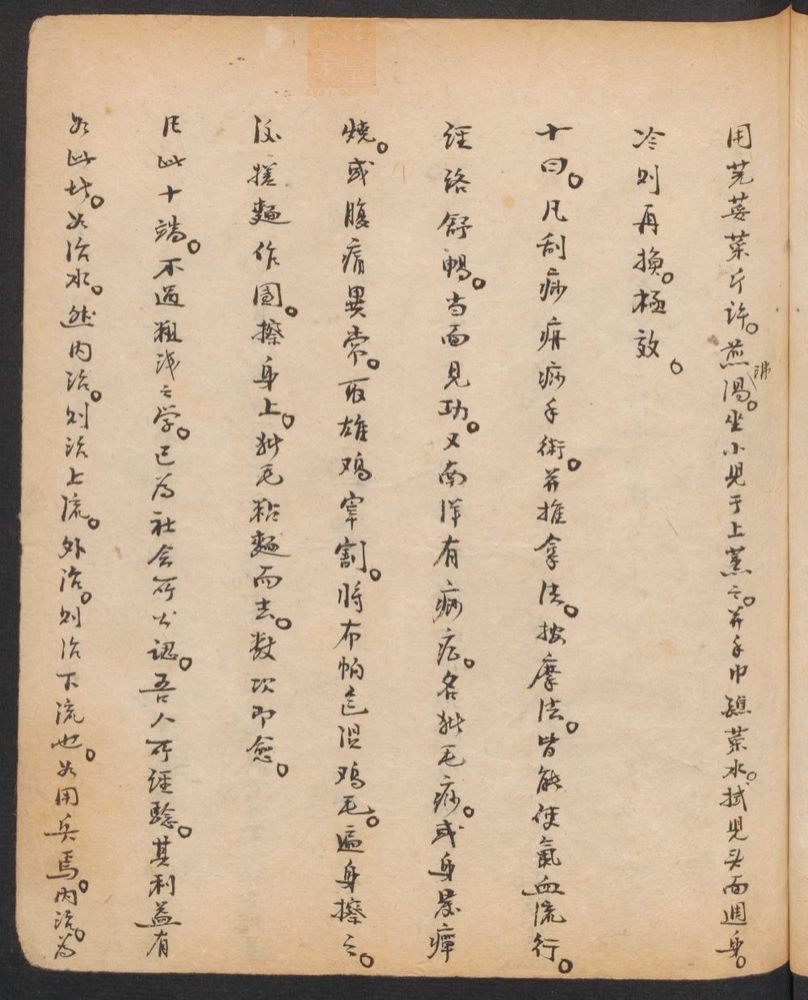 用芫荽菜斤许。煎汤沸。坐小児于上蒸之。并手巾蘸菜水。拭児头面週身。
冷则再换。极效。
十曰。凡刮痧痧手術。并推拿法。按摩法。皆能使氣血流行。
经络舒畅。当面见功。又南洋有痧症。名毛痧。或身發瘴
烧。或腹痛異常。取雄鸡宰割。將布帕包温鸡毛。遍身擦之。
後搓麺作團。擦身上。毛粘麺而去。数次即愈。
凡此十端。不過粗浅之学。已為社会所公認。吾人所经驗。其利益有
如此者。如治水。然内治。则治上流。外治。则治下流也。如用兵焉。内治。为